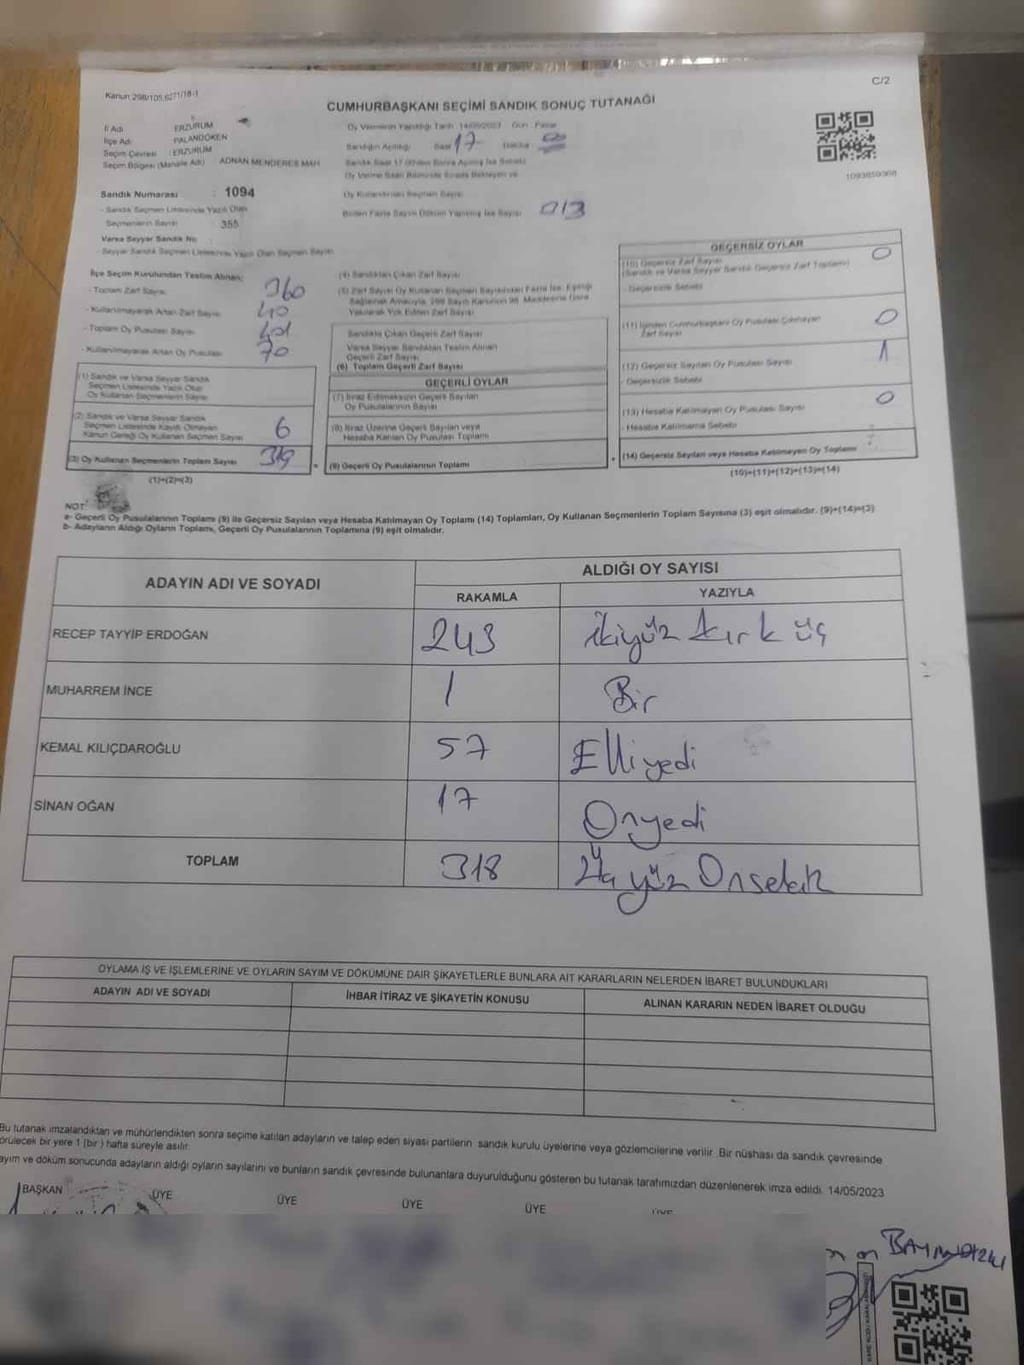 Kanun 298/105,6271/18-1
C/2
CUMHURBAŞKANI SEÇİMİ SANDIK SONUÇ TUTANAĞI
İl Adı ERZURUM
İlçe Adı PALANDÖKEN
Seçim Çevresi : ERZURUM
Seçim Bölgesi (Mahalle Adı) ADNAN MENDERES MAH
Oy Vermenin Yapıldığı Tarih 14/05/2023 Gün Pazar
Sandığın Açıldığı Saat 17
Oy Kullandıran Seçmen Sayısı
Birden Fazla Sayım Döküm Yapılmış İse Sayısı 013
Sandık Numarası : 1094
- Sandık Seçmen Listesinde Yazılı Olan
Seçmenlerin Sayısı 355
Varsa Seyyar Sandık No
- Seyyar Sandık Seçmen Listesinde Yazılı Olan Seçmen Sayısı
İlçe Seçim Kurulundan Teslim Alınan;
- Toplam Zarf Sayısı 360
- Kullanılmayarak Artan Zarf Sayısı 40
- Toplam Oy Pusulası Sayısı 401
- Kullanılmayarak Artan Oy Pusulası 70
(1) Sandık ve Varsa Seyyar Sandık
Seçmen Listesinde Yazılı Olup
Oy Kullanan Seçmenlerin Sayısı
(2) Sandık ve Varsa Seyyar Sandık
Seçmen Listesinde Kayıtlı Olmayan
Kanun Gereği Oy Kullanan Seçmen Sayısı 6
(3) Oy Kullanan Seçmenlerin Toplam Sayısı 319
(1)+(2)=(3)
(4) Sandıktan Çıkan Zarf Sayısı
(5) Zarf Sayısı Oy Kullanan Seçmen Sayısından Fazla İse, Eşitliği
Sağlamak Amacıyla, 298 Sayılı Kanunun 98. Maddesine Göre
Yakılarak Yok Edilen Zarf Sayısı
Sandıkta Çıkan Geçerli Zarf Sayısı
Varsa Seyyar Sandıktan Teslim Alınan
Geçerli Zarf Sayısı
(6) Toplam Geçerli Zarf Sayısı
GEÇERLİ OYLAR
(7) İtiraz Edilmeksizin Geçerli Sayılan
Oy Pusulalarının Sayısı
(8) İtiraz Üzerine Geçerli Sayılan veya
Hesaba Katılan Oy Pusulası Toplamı
(9) Geçerli Oy Pusulalarının Toplamı
GEÇERSİZ OYLAR
(10) Geçersiz Zarf Sayısı 0
(Sandık ve Varsa Seyyar Sandık Geçersiz Zarf Toplamı)
- Geçersizlik Sebebi
(11) İçinden Cumhurbaşkanı Oy Pusulası Çıkmayan 0
Zarf Sayısı
(12) Geçersiz Sayılan Oy Pusulası Sayısı 1
- Geçersizlik Sebebi
(13) Hesaba Katılmayan Oy Pusulası Sayısı 0
- Hesaba Katılmama Sebebi
(14) Geçersiz Sayılan veya Hesaba Katılmayan Oy Toplamı
(10)+(11)+(12)+(13)=(14)
NOT:
a- Geçerli Oy Pusulalarının Toplamı (9) ile Geçersiz Sayılan veya Hesaba Katılmayan Oy Toplamı (14) Toplamları, Oy Kullanan Seçmenlerin Toplam Sayısına (3) eşit olmalıdır. (9)+(14)=(3)
b- Adayların Aldığı Oyların Toplamı, Geçerli Oy Pusulalarının Toplamına (9) eşit olmalıdır.
ADAYIN ADI VE SOYADI
ALDIĞI OY SAYISI
RAKAMLA YAZIYLA
RECEP TAYYİP ERDOĞAN 243 İkiyüz Kırk üç
MUHARREM İNCE 1 Bir
KEMAL KILIÇDAROĞLU 57 Elliyedi
SİNAN OĞAN 17 Onyedi
TOPLAM 318 Üçyüz Onsekiz
OYLAMA İŞ VE İŞLEMLERİNE VE OYLARIN SAYIM VE DÖKÜMÜNE DAİR ŞİKAYETLERLE BUNLARA AİT KARARLARIN NELERDEN İBARET BULUNDUKLARI
ADAYIN ADI VE SOYADI İHBAR İTİRAZ VE ŞİKAYETİN KONUSU ALINAN KARARIN NEDEN İBARET OLDUĞU
Bu tutanak imzalandıktan ve mühürlendikten sonra seçime katılan adayların ve talep eden siyasi partilerin sandık kurulu üyelerine veya gözlemcilerine verilir. Bir nüshası da sandık çevresinde
görülecek bir yere 1 (bir) hafta süreyle asılır.
ayım ve döküm sonucunda adayların aldığı oyların sayılarını ve bunların sandık çevresinde bulunanlara duyurulduğunu gösteren bu tutanak tarafımızdan düzenlenerek imza edildi. 14/05/2023
BAŞKAN ÜYE ÜYE ÜYE ÜYE ÜYE